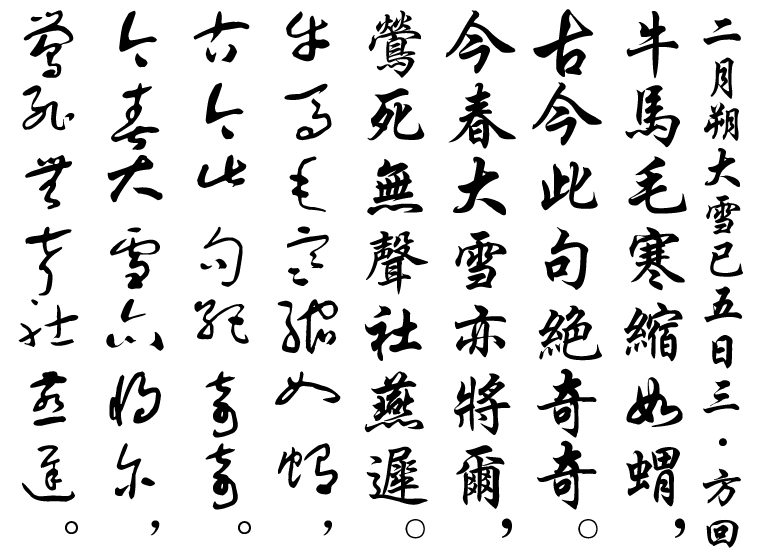 二月朔大雪已五日三·方回
牛馬毛寒縮如蝟，
古今此句絕奇奇。
今春大雪亦將爾，
鶯死無聲社燕遲。
牛馬毛寒縮如蝟，
古今此句絕奇奇。
今春大雪亦將爾，
鶯死無聲社燕遲。